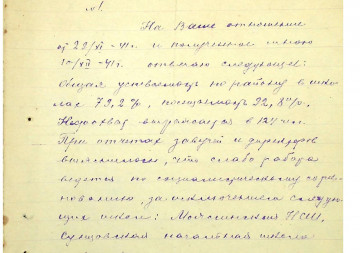 На Ваше отношение
от 29/XI - 41 г. и полученное мною
10/XII - 41 г. отвечаю следующее:
Общая успеваемость по району в шко
лах 79,2%, посещаемость 92,8%.
Недоохват выражается в 124 чел.
При отчетах завучей и директоров
выяснилось, что слабо работа
ведется по социалистическому сорев
нованию, за исключением следую
щих школ: НСШ,
начальная школа